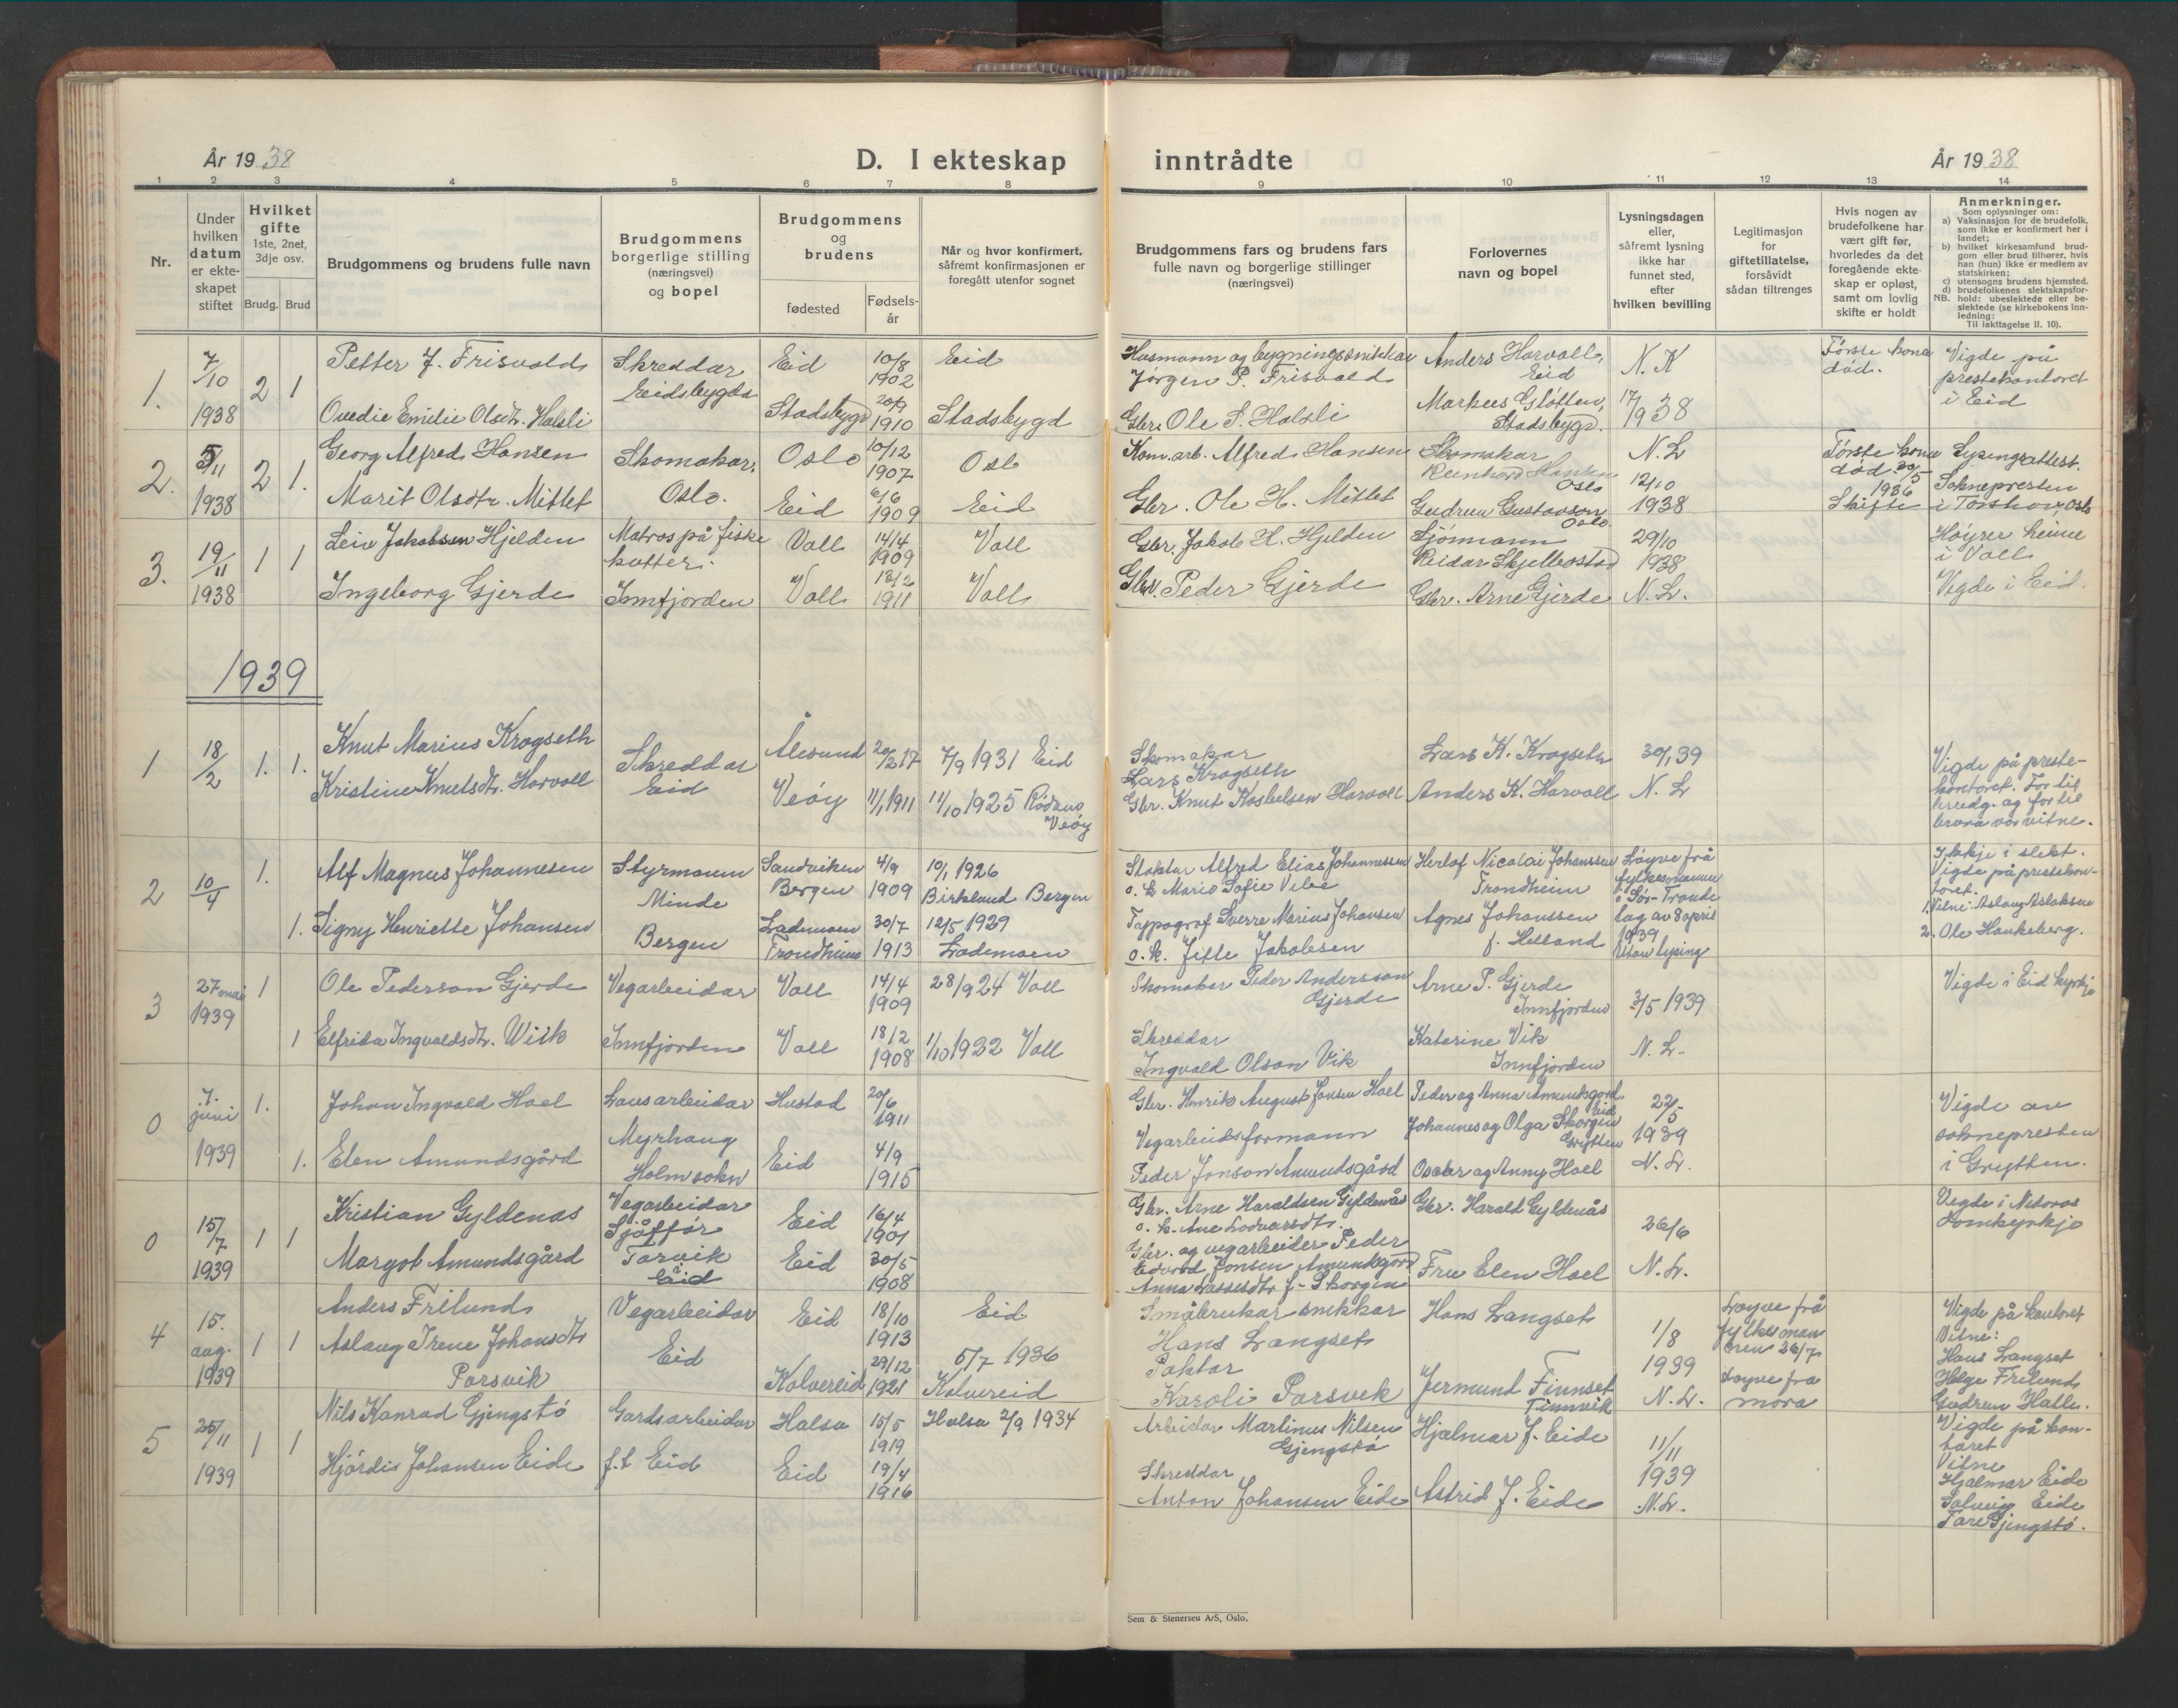 År 1938
D. I ekteskap
inntrådte
År 1938
1 2 3 4 5 6 7 8
9 10 11 12 13 14
Nr.
Under
hvilken
datum
er ekte-
skapet
stiftet
Hvilket
gifte
1ste, 2net,
3dje osv.
Brudg. Brud
Brudgommens og brudens fulle navn
Brudgommens
borgerlige stilling
(næringsvei)
og bopel
Brudgommens
og
brudens
fødested
Fødsels-
år
Når og hvor konfirmert,
såfremt konfirmasjonen er
foregått utenfor sognet
Brudgommens fars og brudens fars
fulle navn og borgerlige stillinger
(næringsvei)
Forlovernes
navn og bopel
Lysningsdagen
eller,
såfremt lysning
ikke har
funnet sted,
efter
hvilken bevilling
Legitimasjon
for
giftetillatelse,
forsåvidt
sådan tiltrenges
Hvis nogen av
brudefolkene har
vært gift før,
hvorledes da det
foregående ekte-
skap er opløst,
samt om lovlig
skifte er holdt
Anmerkninger.
Som oplysninger om:
a) Vaksinasjon for de brudefolk,
som ikke er konfirmert her i
landet;
b) hvilket kirkesamfund brud-
gom eller brud tilhører, hvis
han (hun) ikke er medlem av
statskirken;
c) utensogns brudens hjemsted,
d) brudefolkenes slektskapsfor-
NB. hold: ubeslektede eller be-
slektede (se kirkebokens inn-
ledning:
Til iakttagelse II. 10).
1. 7/10 1938 2 1
Petter J. Frisvold
Skreddar
Eidsbygda
Eid
10/8
1902
Eid
Husmann og bygningssnikkar
Jørgen P. Frisvold
Anders Harvoll,
Eid
N. K
Første kona
død.
Vigde på
prestekontoret
i Eid
Ovedie Emilie Olsdtr. Halsli
Stadsbygd
1910
Stadsbygd
Gbr. Ole S. Halsli
Markus Sløtten,
Stadsbygd.
17/9 38
2. 5/11 1938 2 1.
Georg Alfred Hansen
Skomakar,
Oslo.
Oslo
10/12
1907
Oslo
Kom.arb. Alfred Hansen
Skomakar
Reinhard Hansen
Oslo
N. L
Første kona
død 29/5
1936
Skifte
Lysingsattest.
Soknepresten
i Torshov, Oslo
Marit Olsdtr. Mittet
Eid
6/6
1909
Eid
Gbr. Ole H. Mittet
Gudrun Gustavson
Oslo
12/10
1938
3. 19/11 1938 1 1
Leiv Jakobsen Hjelden
Matros på fiske
kutter.
Voll
14/4
1909
Voll
Gbr. Jakob H. Hjelden
Sjømann
Reidar Skjelbostad
29/10
1938
Høyrer heime
i Voll
Ingeborg Gjerde
Innfjorden
Voll
18/2
1911
Voll
Gbr. Peder Gjerde
Gbr. Arne Gjerde
N. L.
Vigde i Eid.
1939
1 18/2 1. 1.
Knut Marius Krogseth
Skreddar
Eid
Ålesund
20/2 17
7/9 1931 Eid
Skomakar
Lars Krogseth
Lars K. Krogseth
30/1 39
Vigde på preste-
kontoret. Far til
brudg. og far til
brura var vitne.
Kristine Knutsdtr. Harvoll
Veøy
11/1 1911
11/10 1925 Rødven
Veøy
Gbr. Knut Hansen Harvoll
Anders K. Harvoll
N. L
2 10/4 1.
Alf Magnus Johannesen
Styrmann
Minde
Bergen
Sandviken
Bergen
4/9
1909
10/1 1926
Birkeland Bergen
Alfred Elias Johannessen
o. h. Marie Sofie Vebe
Herlof Nicolai Johanssen
Trondheim
Løyve frå
fylkesmannen
i Sør-Trønde
lag av 8 april
1939
Utan lysing
Ikkje i slekt.
Vigde på prestekon-
toret.
1. Vitne: Aslaug Aslaksen
2. Ole Haukeberg.
1. Signy Henriette Johansen
Lademoen
Trondheim
30/7
1913
12/5 1929
Lademoen
Typograf Sverre Marius Johansen
o. h. Jette Jakobsen
Agnes Johanssen
f. Helland
3 27 mai
1939 1
Ole Pederson Gjerde
Vegarbeidar
Voll
14/4
1909
28/9 24 Voll
Skomakar Peder Andersson
Gjerde
Arne P. Gjerde
Innfjorden
3/5 1939
Vigde i Eid kyrkje
1 Elfrida Ingvaldsdtr. Wiik
Innfjorden
Voll
18/2
1908
1/10 1922 Voll
Skreddar
Ingvald Olson Vik
Katarine Vik
Innfjorden
N. L.
0 7.
juni
1939 1.
Johan Ingvald Hoel
Lausarbeidar
Myrhaug
Holm sokn
Hustad
20/6
1911
Gbr. Henrik August Jonsen Hoel
Peder og Anna Amundsgård
Eid
22/5
1939
N. L.
Vigde av
soknepresten
i Grytten.
1. Elen Amundsgård
Eid
4/9
1915
Vegarbeidsformann
Peder Jonson Amundsgård
Johannes og Olga Skorgen
Grytten
Oscar og Anny Hoel
0 15/7 1939 1 1
Kristian Gyldenås
Vegarbeidar
Sjåfför
Torvik
i Eid
Eid
16/4
1901
Gbr. Arne Haraldsen Gyldenås
o. h. Ane
Gbr. Harald Gyldenås
26/6
N. L.
Vigde i Nidaros
Domkyrkje
Margot Amundsgård
Eid
30/5
1908
Gbr. og vegarbeider Peder
Edvard Jonsen Amundsgård
Anna Lassesdtr f. Skorgen
Fru Elen Hoel
4 15.
aug.
1939 1 1
Anders Frilund
Vegarbeidar
Eid
Eid
18/10
1913
Eid
Småbrukar snikkar
Hans Langset
Hans Langset
1/8
1939
N. L.
Løyve frå
fylkesman
nen 26/7
Løyve frå
mora
Vigde på kontoret
Vitne:
Hans Langset
Helge Frilund
Gudrun Halle.
Aslaug Irene Johansdtr
Parsvik
Kolvereid
29/12
1921
5/7 1936
Kolvereid
Paktar
Karoli Parsvik
Jermund Finnset
Finnvik
5 25/11 1939 1 1
Nils Konrad Gjengstø
Gardsarbeidar
f.t. Eid
Halsa
15/5
1919
Halsa 2/9 1934
Arbeidar Martinus Nilsen
Gjengstø
Hjalmar J. Eide
11/11
1939
N. L.
Vigde på kon-
toret
Vitne
Hjalmar Eide
Solveig Eide
Tore Gjengstø.
Hjördis Johansen Eide
Eid
19/4
1916
Skreddar
Anton Johansen Eide
Astrid J. Eide
Sem & Stenersen A/S, Oslo.